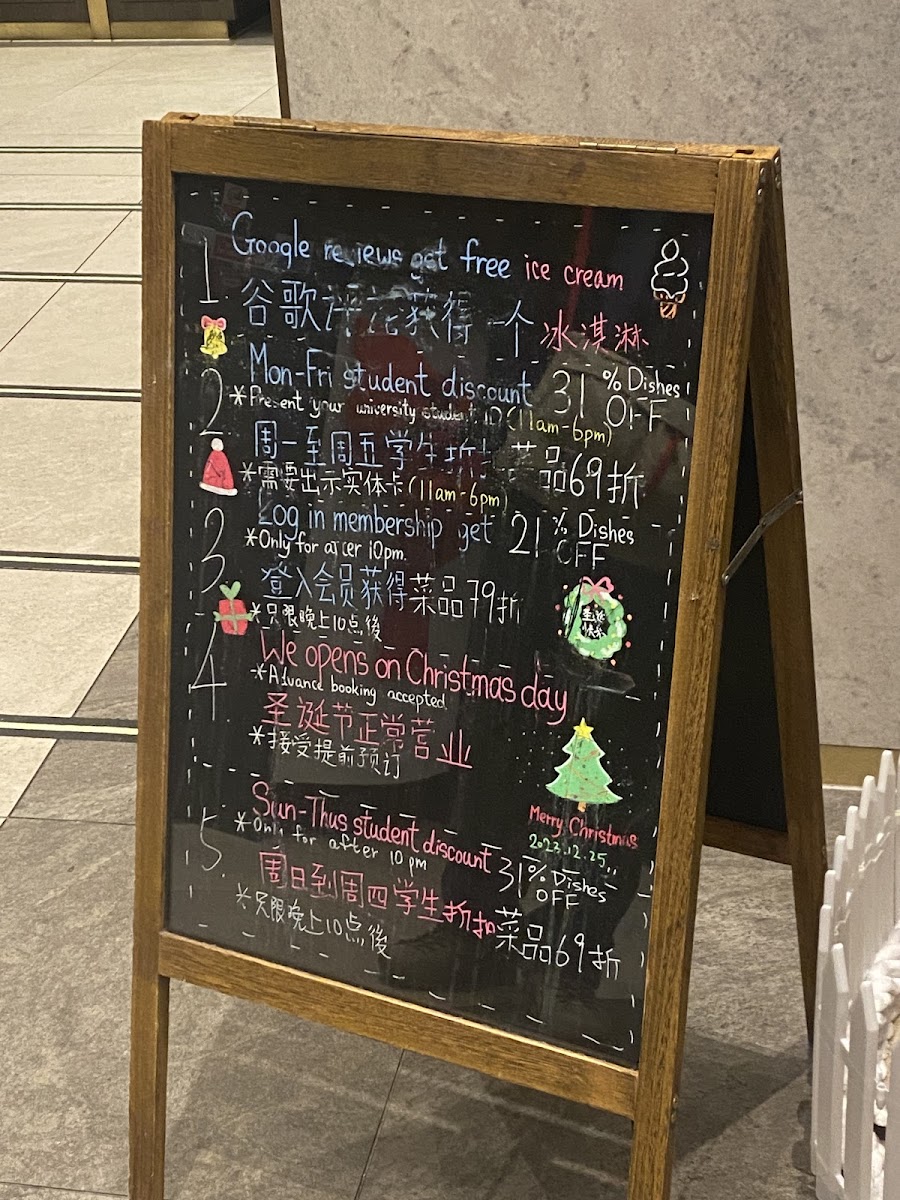 1. Google reviews get free ice cream
谷歌评论获得一个冰淇淋
2 Mon-Fri student discount 31% Dishes OFF
*Present your university student ID (11am-6pm)
周一至周五学生折扣菜品69折
*需要出示实体卡(11am-6pm)
3 Log in membership get 21% Dishes OFF
*Only for after 10pm.
登入会员获得菜品79折
*只限晚上10点後
圣诞快乐
4 We opens on Christmas day
*Advance booking accepted.
圣诞节正常营业
*接受提前预订
Merry Christmas
2023.12.25..
5. Sun-Thus student discount 31% Dishes OFF
*Only for after 10pm
周日到周四学生折扣菜品69折
*只限晚上10点後